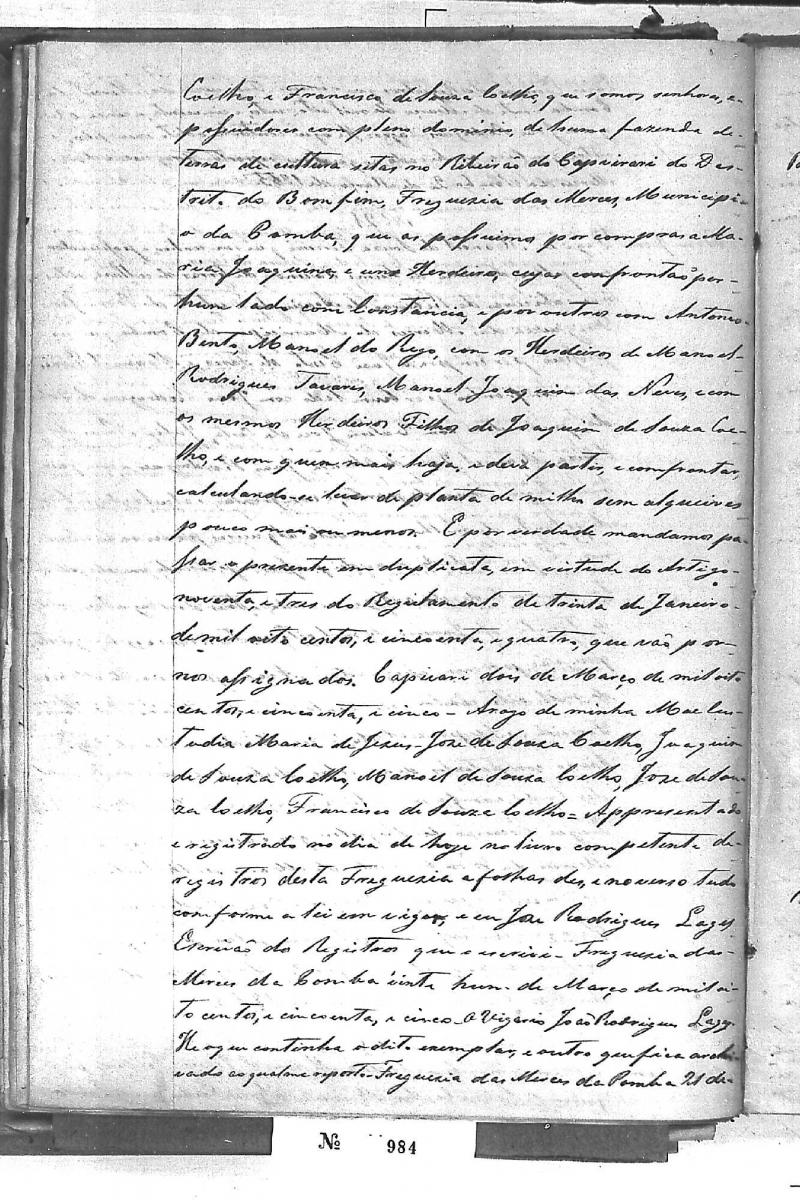 Coelho, e Francisco de Souza Coelho, que somos senhores, e
possuidores com pleno dominio, de huma fazenda de-
terras de cultura sitas no Ribeirão do Capivari do Des-
trito do Bom fim, Freguezia das Merces, Municipi-
o da Pomba, que as possuimos por compras a Ma-
ria Joaquina, e uns Herdeiros, cujas confrontão por-
hum lado com Constancia, e por outros com Antonio-
Bento, Manoel do Rego, com os Herdeiros de Manoel-
Rodrigues Tavares, Manoel Joaquim das Neves, e com
os mesmos Herdeiros Filhos de Joaquim de Souza Coe-
lho, e com quem mais haja, e deva partir, e comfrontar,
calculando-se levar de planta de milho sem alqueires
pouco mais ou menos. E por verdade mandamos pa-
ssar o prezente em duplicata, em virtude do Artigo-
noventa, e tres do Regulamento de trinta de Janeiro-
de mil oito centos, e cincoenta, e quatro, que vão por-
nós assignados. Capivari dois de Março de mil oito
centos, e cincoenta, e cinco - Arogo de minha Mae Cus-
todia Maria de Jezus - Joze de Souza Coelho, Joaquim
de Souza Coelho, Manoel de Souza Coelho, Joze de Sou-
za Coelho, Francisco de Souza Coelho = Appresentado
e registrado no dia de hoje no livro competente de-
registros desta Freguezia a folhas des, e no verso tudo
comforme a lei em vigor, e eu Joze Rodrigues Lages
Escrivão do Registros que o escrivi - Freguezia das-
Merces da Pomba vinte hum de Março de mil oi-
to centos, e cincoenta, e cinco - O Vigario João Rodrigues Lages.
He o que continha o dito exemplar, e outro que fica archi-
vado ao qual me reporto - Freguezia das Merces da Pomba 21 de-
Nº 984